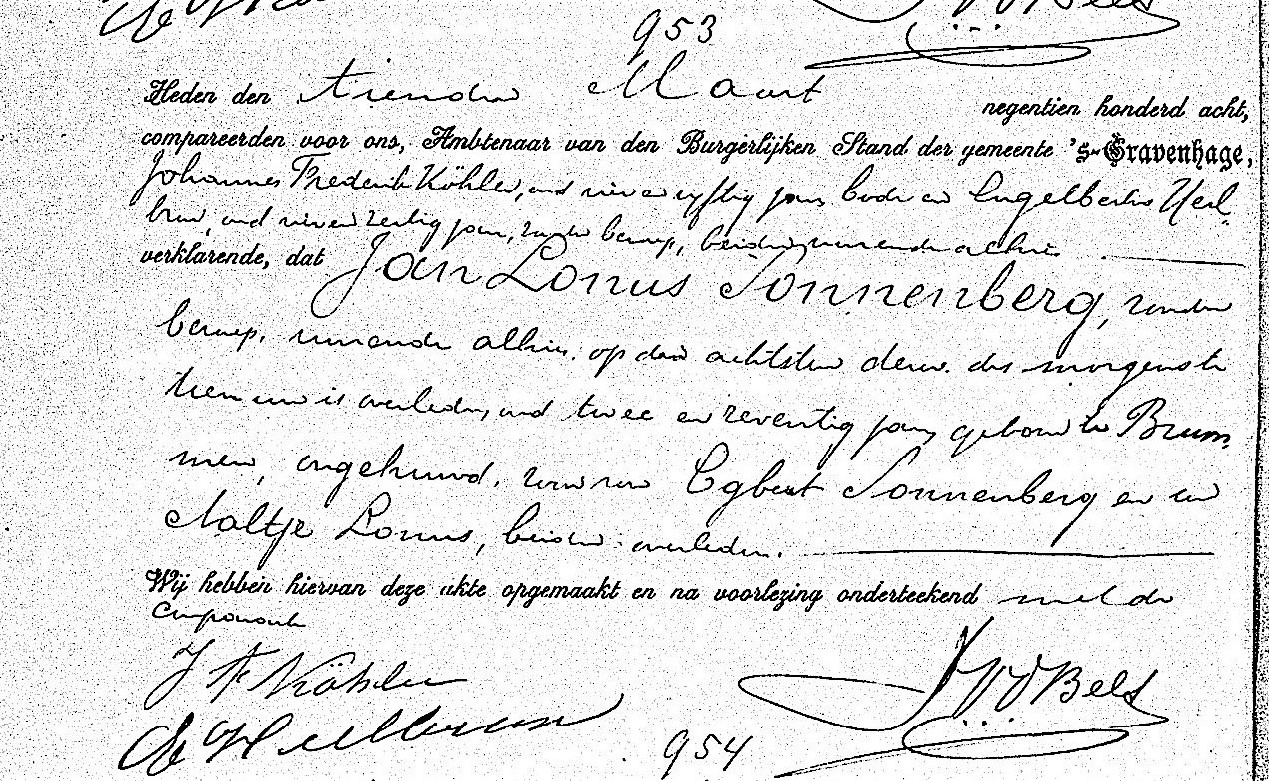 953
Heden den tienden Maart negentien honderd acht,
compareerden voor ons, Ambtenaar van den Burgerlijken Stand der gemeente 's-Gravenhage,
Johannes Frederik Köhler, oud vijftig jaar, bode en Engelbertus
oud jaar, zonder beroep, beiden wonende alhier
verklarende, dat Jan Lonus Sonnenberg, zonder
beroep, wonende alhier, op den achtsten dezer des morgens te
tien ure is overleden, oud twee en zeventig jaar, geboren te Brum
men, ongehuwd, zoon van Egbert Sonnenberg en van
Aaltje Lonus, beiden overleden.
Wij hebben hiervan deze akte opgemaakt en na voorlezing onderteekend met de
comparanten
J F Köhler
954